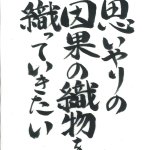 思いやりの
因果の織物を
織っていきたい